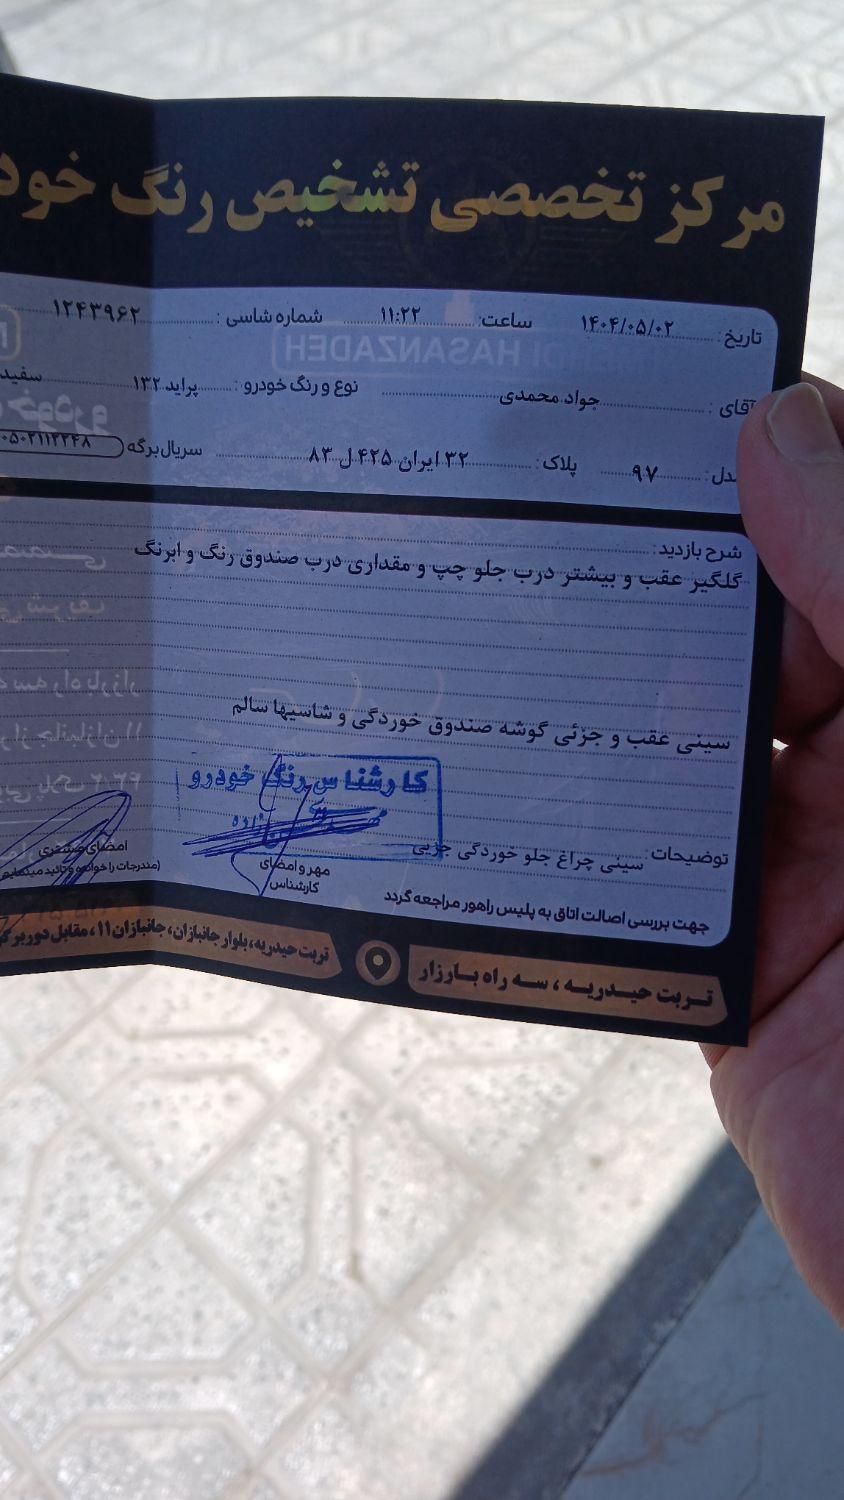 مرکز تخصصی تشخیص رنگ خود
تاریخ: ۱۴۰۴/۰۵/۰۲ ساعت: ۱۱:۲۲ شماره شاسی: ۱۲۴۳۹۶۲
آقای: جواد محمدی نوع و رنگ خودرو: پراید ۱۳۲ سفید
مدل: ۹۷ پلاک: ۳۲ ایران ۴۲۵ ل ۸۳ سریال برگه
شرح بازدید:
گلگیر عقب و بیشتر درب جلو چپ و مقداری درب صندوق رنگ و ابرنگ
سینی عقب و جزئی گوشه صندوق خوردگی و شاسیها سالم
کارشناس رنگ خودرو
توضیحات: سینی چراغ جلو خوردگی جزیی
مهر و امضای
کارشناس
امضای مشتری
(مندرجات را خوانده و تائید مینمایم
جهت بررسی اصالت اتاق به پلیس راهور مراجعه گردد
تربت حیدریه، سه راه بارزار
تربت حیدریه، بلوار جانبازان، جانبازان ۱۱، مقابل دوربرگر
MEHDI HASANZADEH